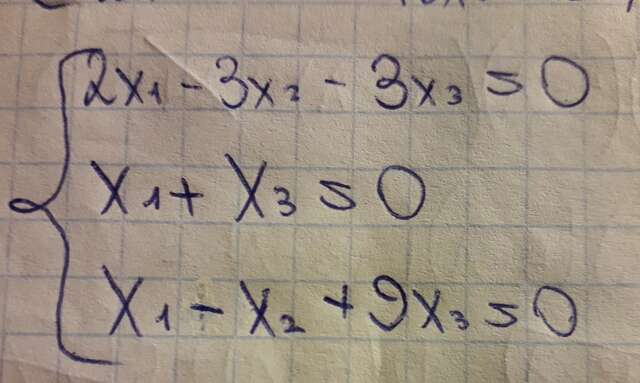 2x₁ - 3x₂ - 3x₃ = 0
x₁ + x₃ = 0
x₁ - x₂ + 9x₃ = 0